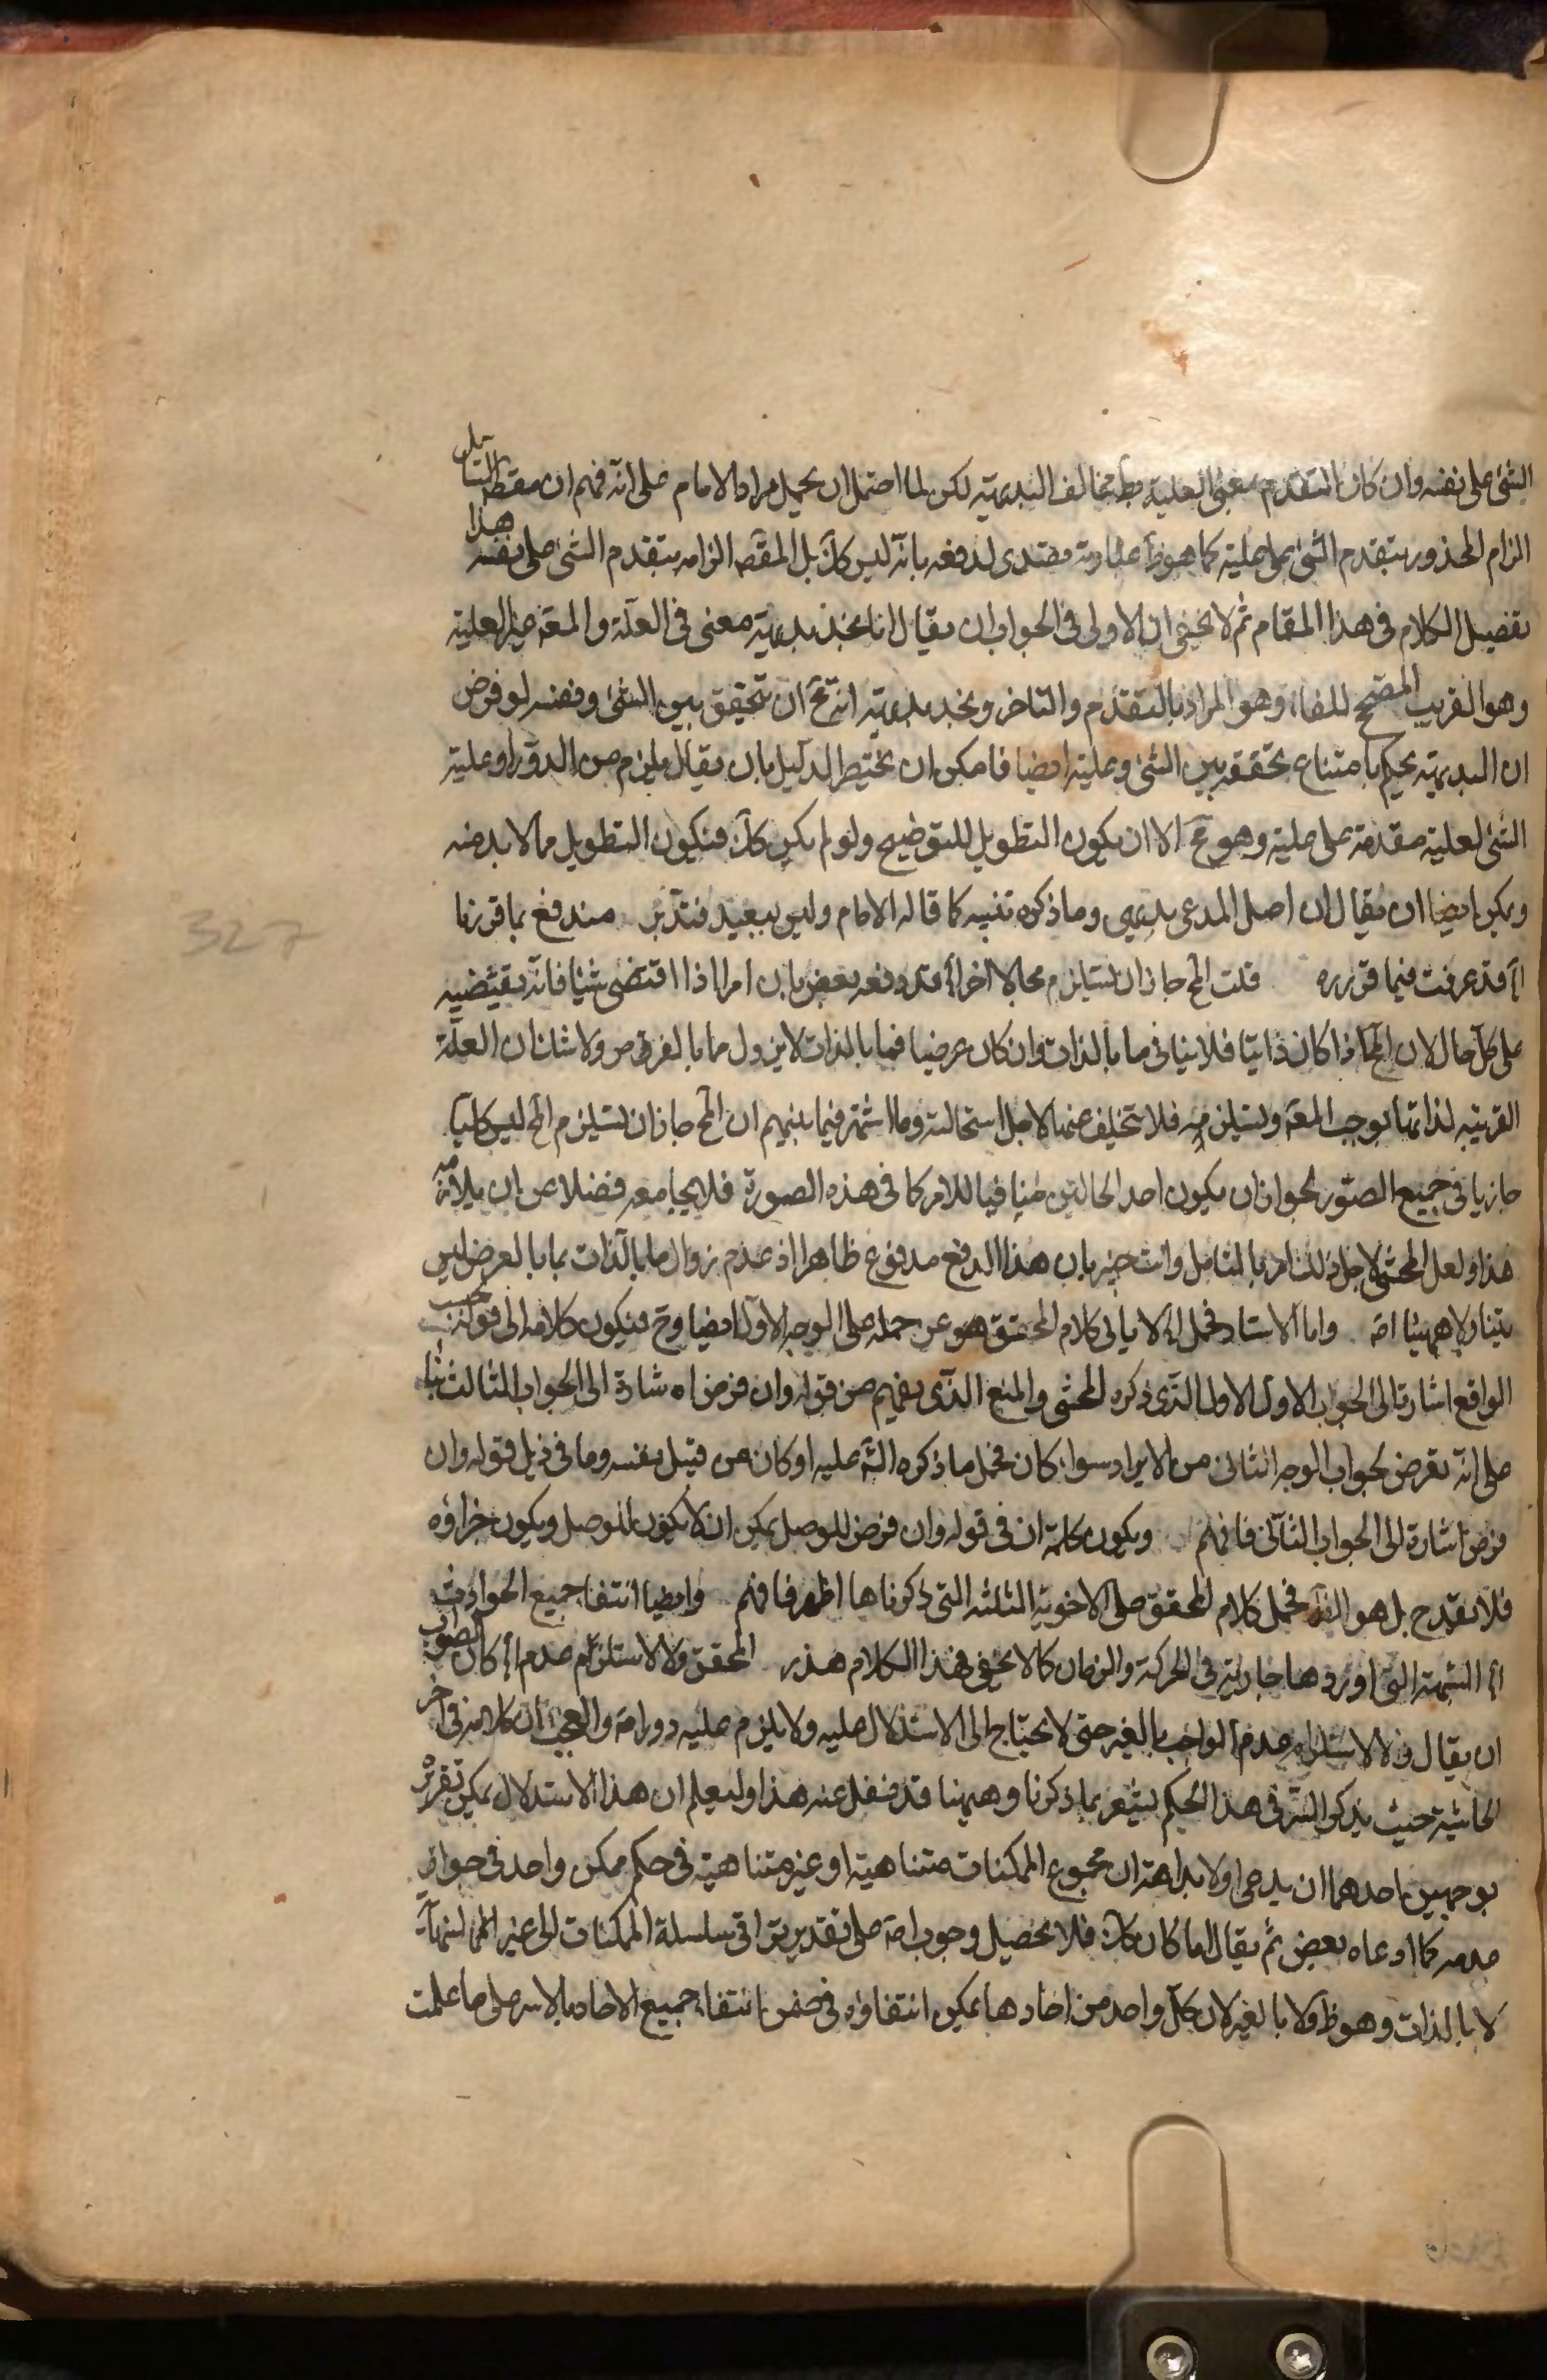 الشئ على نفسه وان كان التقدم بمعنى العلية مط يخالف البديهية لكن لما احتمل ان يحمل مراد الامام على انه فهم ان مقصد القائل
الزام المحذور بتقدم الشئ على علية كما هو ظ عبارته فتصدى لدفعه بانه ليس كك بل المقصد الزامه بتقدم الشئ على نفسه هذا
تفصيل الكلام في هذا المقام ثم لا يخفى ان الاولى في الجواب ان يقال انا نجد بديهية معنى في العلة والمعة غير العلية
وهو القريب المصحح للفاء وهو المراد بالتقدم والتاخر ونجد بديهية انه مح ان تحقق بين الشئ ونفسه لو فرض
ان البديهية يحكم بامتناع تحققه بين الشئ وعليته ايضا فامكن ان يختصر الدليل بان يقال يلزم من الدور او علية
الشئ لعليته مقدمة على عليته وهو مح الا ان يكون التطويل للتوضيح ولو لم يكن كك فيكون التطويل مما لا بد منه
ويمكن ايضا ان يقال ان اصل المدعى بديهي وما ذكره تنبيه كما قاله الامام وليس ببعيد فتدبر مندفع بما قررنا
قد عرفت فيما قرره قلت المح جاز ان يستلزم محالا اخر قد دفعه بعض بان امرا اذا اقتضى شيئا فانه يقتضيه
على كل حال لان المح اذا كان ذاتيا فلا ينافى ما بالذات وان كان عرضيا فما بالذات لا يزول مما بالفرض ولا شك ان العلة
القريبة لذاتها يوجب المعة ويستلزمه فلا تخلف عنها لاجل استحالته وما اشتهر فيما بينهم ان المح جاز ان يستلزم المح ليس كليا
جاريا في جميع الصور بجواز ان يكون احد الحالتين منافيا للامر كما في هذه الصورة فلا يجامعه فضلا عن ان يلازمه
هذا ولعل المحشي لاجل ذلك امر بالتامل وانت خبير بان هذا الدفع مدفوع ظاهرا اذ عدم زوال ما بالذات بما بالعرض ليس
بينا ولا مبينا اصة واما الاستاد فحمل كلام المحقق هو عن حمله على الوجه الاول ايضا وح فيكون كلامه الى قوله بحسب
الواقع اشارة الى الجواب الاول الاولى الذي ذكره المحشي والمنع الذي يفهم من قوله وان فرض اه اشارة الى الجواب الثالث بناء
على انه تعرض بجواب الوجه الثاني من الايراد سواء كان فحمل ما ذكره الشه عليه او كان من قبل نفسه وما في ذيل قوله وان
فرض اشارة الى الجواب الثاني فافهم ويكون كلمة ان في قوله وان فرض للوصل يمكن ان لا يكون للوصل ويكون جزاؤه
فلا يقدح بل هو فحمل كلام المحقق على الاجوبة الثلثة التي ذكرناها اظهر فافهم وايضا انتفاء جميع الحوادث
الشبهة التي اوردها جارية في الحركة والزمان كما لا يخفى فهذا الكلام هذر المحقق ولا لاستلزام عدم كان الصواب
ان يقال ولا لاستلزام عدم الواجب بالغير حتى لا يحتاج الى الاستدلال عليه ولا يلزم عليه دور اصة والعجب ان كلامه في اخر
الحاشية حيث يذكر السر في هذا الحكم يشعر بما ذكرنا وهيهنا قد غفل عنه هذا وليعلم ان هذا الاستدلال يمكن تقريره
بوجهين احدهما ان يدعى اولا بداهة ان مجموع الممكنات متناهية او غير متناهية في حكم ممكن واحد في جواز
عدمه كما ادعاه بعض ثم يقال لما كان كك فلا يحصل وجوب اصة على تقدير تراقى سلسلة الممكنات الى غير النهاية
لا بالذات وهو ظ ولا بالغير لان كل واحد من احادها يمكن انتفاؤه في ضمن انتفاء جميع الاحاد بالاسر على ما علمت
327